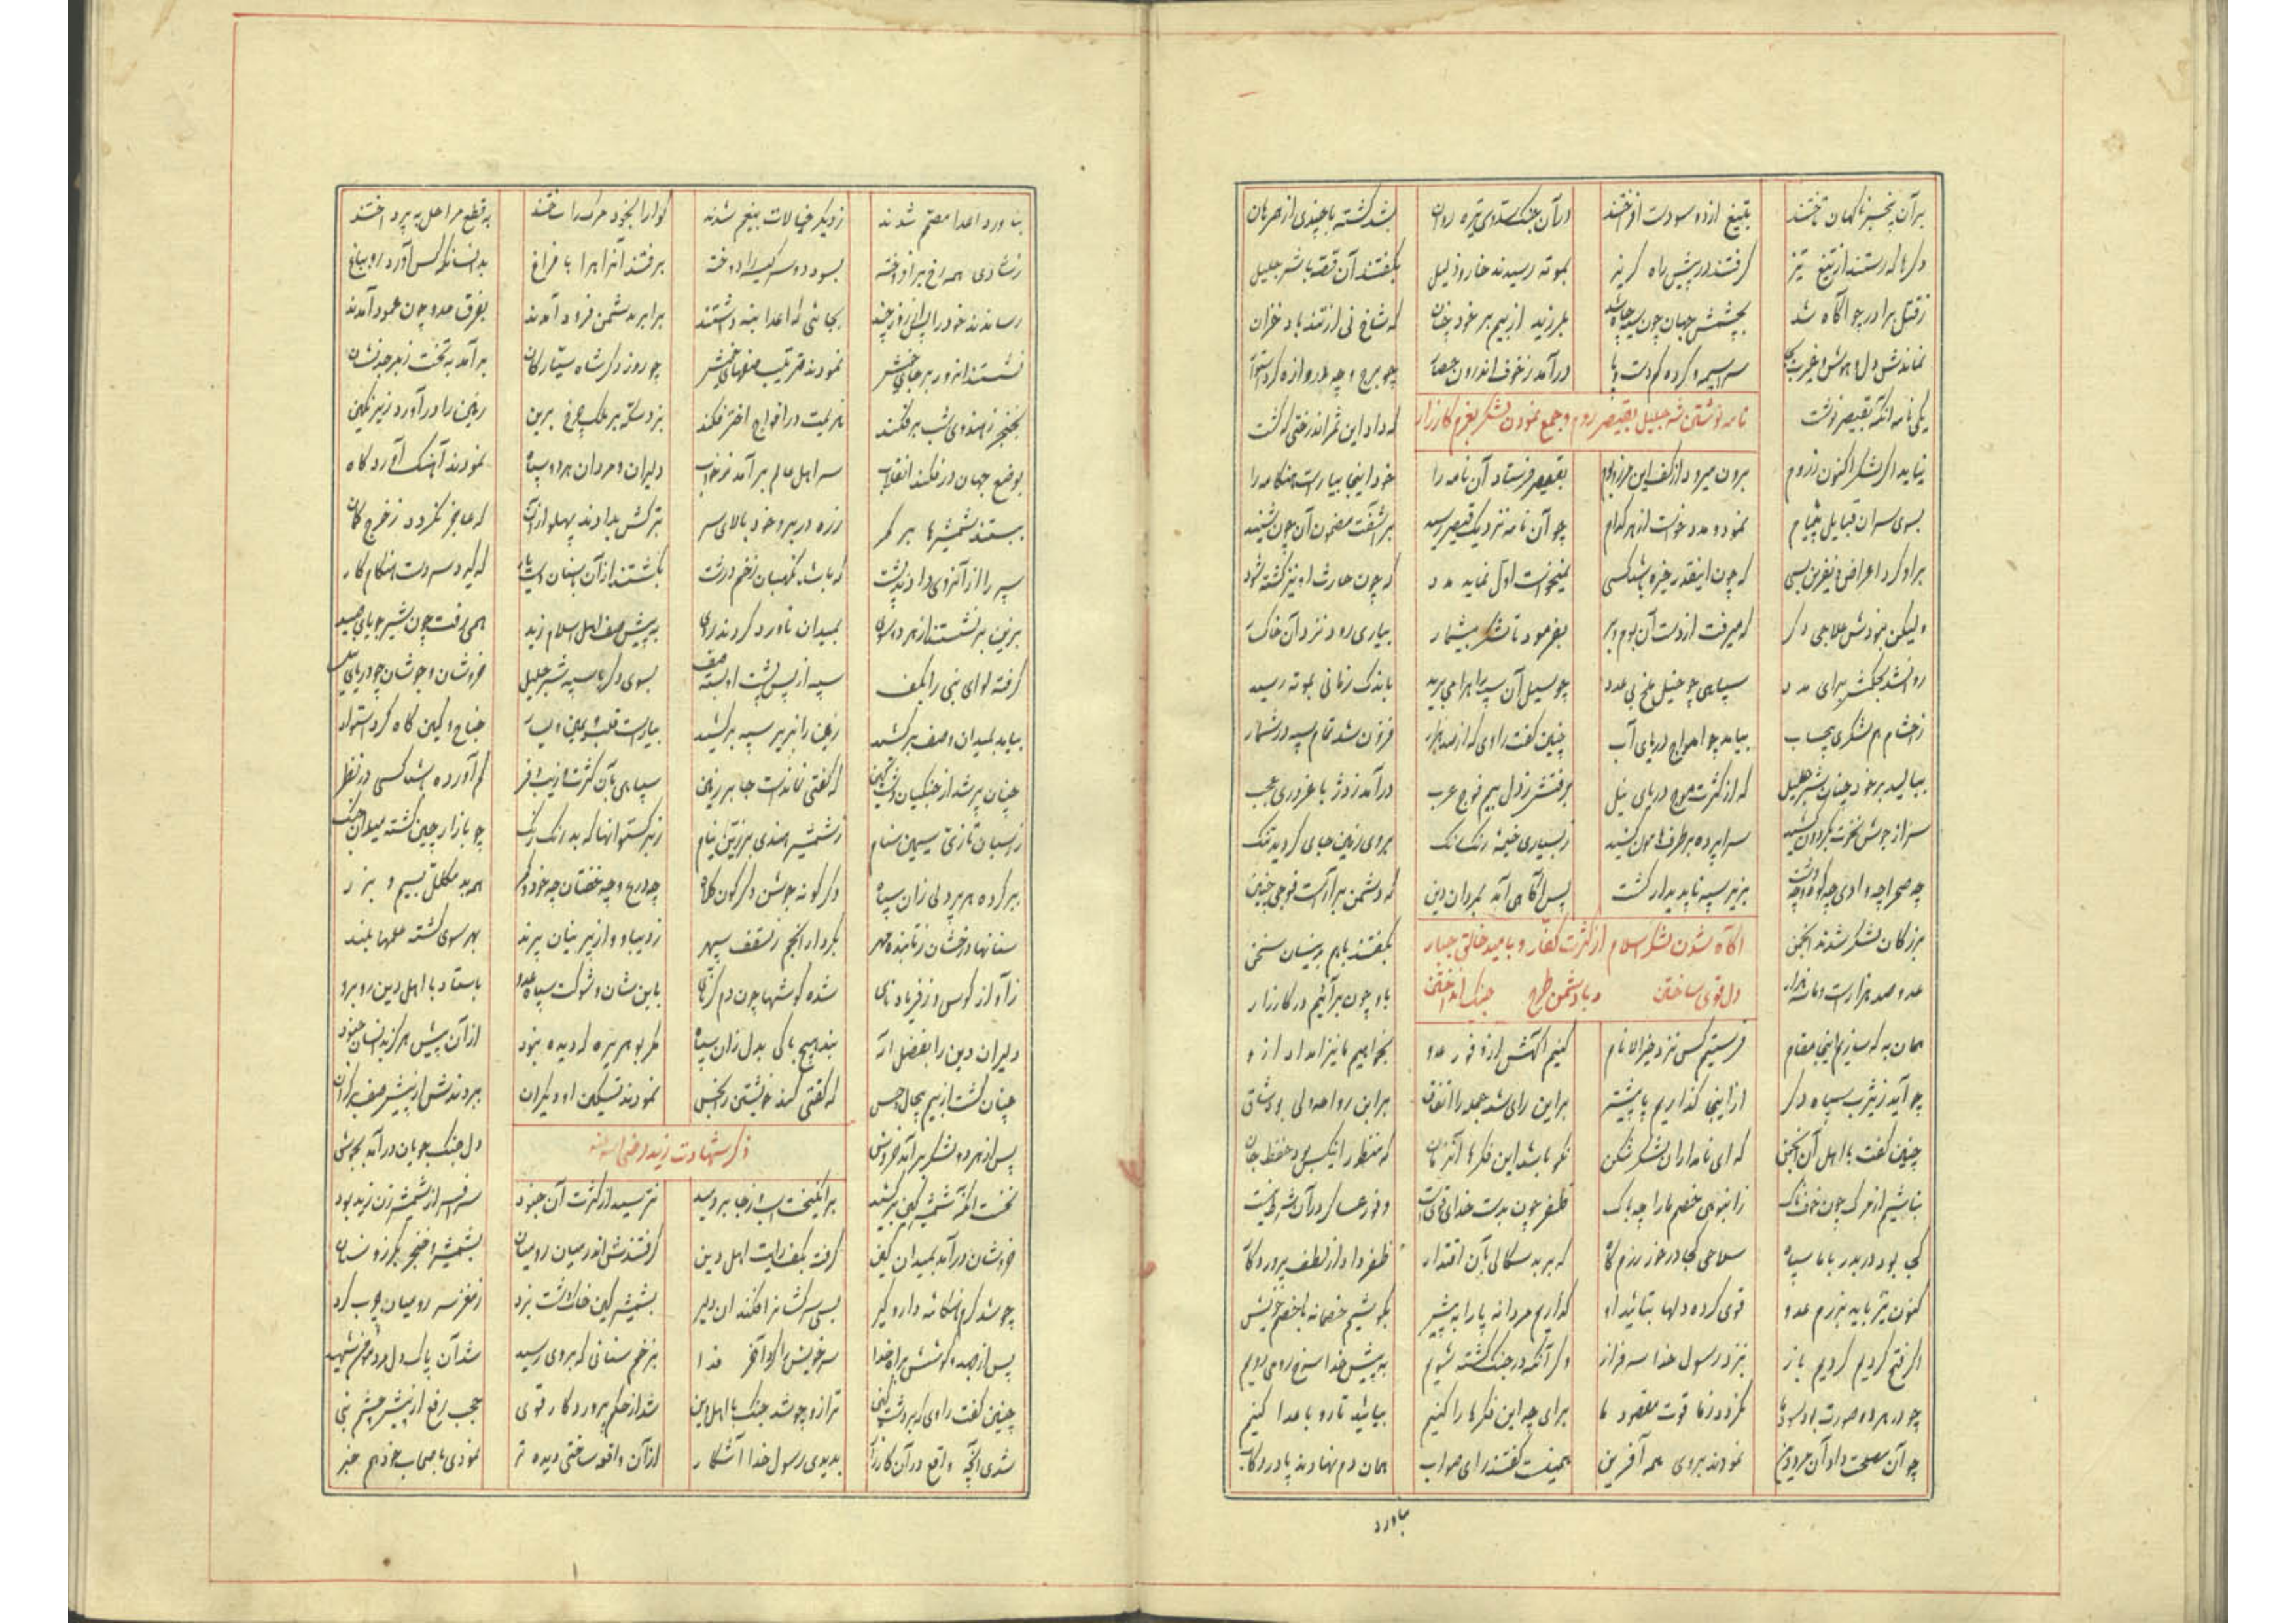 بر آن بیخبر ناکهان تاختند بتیغ از دو سو دست افراختند در آن جنک سردوی تیره روان بشد کشته با چندی از همرهان
دکرها که رستند از تیغ تیز کرفتند در پیش راه کریز بموته رسیدند خار و ذلیل بکفتند آن قصه با شرجلیل
ز قتل برادر چو آکاه شد بچشمش جهان چون سیه چاه شد بلرزید از بیم بر خود چنان که شاخ نی از تند باد خزان
نماندش دل و هوش و غیرت بجا سراسیمه کرده کم دست و پا درآمد ز خوف اندرون حصار چو برج و چه دروازه کرد استوار
یکی نامه آنکه بقیصر نوشت که داد این ثمر اندر ختی که کشت
نامه نوشتن شرجلیل بقیصر روم و جمع نمودن لشکر بعزم کارزار
نیاید اکر لشکر اکنون ز روم برون میرود از کف این مرز و بوم بقیصر فرستاد آن نامه را خود اینجا بیاراست هنکامه را
بسوی سران قبایل پیام نمود و مدد خواست از هر کدام چو آن نامه نزدیک قیصر رسید برآشفت مضمون آن چون شنید
برو کرد اعراض و نفرین بسی که چون اینقدر خیره باشد کسی نمیخواست اول نماید مدد که چون حارث او نیز کشته شود
ولیکن نبودش علاجی دکر که میرفت از دست آن بوم و بر بفرمود تا لشکر بیشمار بیاری رود نزد آن خاکسار
روان شد بحکمش برای مدد سپاهی چو خیل ملخ بی عدد چو سیل آن سپه راه را می برید باندک زمانی بموته رسید
ز احشام هم لشکری بیحساب بیامد چو امواج دریای آب چنین کفت راوی که از صد هزار فزون شد تمام سپه در شمار
ببالید بر خود چنان شرجلیل که از کثرت موج دریای نیل برفتش ز دل بیم فوج عرب درآمد ز دژ با غروری عجب
سر از جوش نخوت بکردون کشید سراپرده بر طرف هامون کشید ز بسیاری خیمه رنک رنک بروی زمین جای کردید تنک
چه صحرا چه وادی چه کوه و چه دشت بزیر سپه ناپدیدار کشت پس آکاهی آمد بمردان دین که دشمن برآراست فوجی چنین
آکاه شدن لشکر اسلام از کثرت کفار و بامید خالق جبار
بزرکان لشکر شدند انجمن بکفتند باهم بدینسان سخن
دل قوی ساختن و با دشمن طرح جنک انداختن
عدو صد هزارست و ما سه هزار باو چون برآئیم در کارزار
همان به که سازیم اینجا مقام فرستیم کس نزد خیرالانام کنیم آکهش از وفور عدو بخواهیم ما نیز امداد ازو
چو آید ز یثرب سپاه دکر از اینجا کذاریم پا پیشتر بر این رای شد جمله را اتفاق بر این رواحه ولی بود شاق
چنین کفت با اهل آن انجمن که ای نامداران لشکر شکن نکو باشد این فکرها آنزمان که منظور اینکس بود حفظ جان
نباشیم از مرک چون خوفناک ز انبوهی خصم ما را چه باک ظفر چون بدست خدای قویست وفور عساکر در آن شرط نیست
کجا بود در بدر با ما سپاه سلاحی کجا در خور رزمکاه که بر بدسکالی بآن اقتدار ظفر داد از لطف پروردکار
کنون نیز باید بعزم عدو قوی کرده دلها بتائید او کذاریم مردانه پا را به پیش بکوشیم خصمانه با خصم خویش
اکر فتح کردیم کردیم باز بنزد رسول خدا سرفراز وکر آنکه در جنک کشته شویم به پیش خدا سرخ روی رویم
چو در هر دو صورت بود سود ما نکردد ز ما فوت مقصود ما برای چه این فکرها را کنیم بیائید تا رو باعدا کنیم
چو آن مصلحت داد آن مرد دین نمودند بروی همه آفرین بحمیت کفتند رای صواب همان دم نهادند پا در رکاب
بناورد
بناورد اعدا مصمم شدند ز دیکر خیالات بیغم شدند کوارا بخود مرک را ساختند به قطع مراحل بپرداختند
ز شادی همه رخ برافروخته بسود دو سر کیسه را دوخته برفتند آنراه را با فراغ بدانسانکه کس آورد رو بباغ
رساندند خود را پس از روز چند بجائی که اعدا بنه داشتند برابر بدشمن فرود آمدند بفرق عدو چون عمود آمدند
نشستند آنروز بر جای خویش نمودند ترتیب صفهای خویش چو روز دکر شاه سیارکان برآمد به تخت زبرجد نشان
بخنجر ز هندوی شب سر فکند هزیمت در افواج اختر فکند بزد سکه بر ملک چرخ برین زمین را درآورد زیر نکین
بوضع جهان در فکند انقلاب سر اهل عالم برآمد ز خواب دلیران و مردان هر دو سپاه نمودند آهنک آوردکاه
ببستند شمشیرها بر کمر زره در بر و خود بالای سر بترکش بدادند پهلو از آن که عاجز نکردد ز خرج کمان
سپر را از آنروی دادند پشت که باشد نکهبان زخم درشت بکشتند از آن بنان دستیار که کیرد سر دست هنکام کار
بر زین بر نشستند از هر دو سوی بمیدان ناورد کردند روی به پیش صف اهل اسلام زید همی رفت چون شیر جویای صید
کرفته لوای نبی را بکف سپه از پس پشت او بسته صف بسوی دکر با سپه شرجلیل خروشان و جوشان چو دریای نیل
بیامد بمیدان و صف برکشید زمین را بزیر سپه برکشید بیاراست قلب و یمین و یسار جناح و کمین کاه کرد استوار
چنان پر شد از جنکیان دشت کین که کفتی نماندست جا بر زمین سپاهی بآن کثرت و زیب و فر کم آورده باشد کسی در نظر
ز اسبان تازی سیمین ستام ز شمشیر هندی زرین نیام ز برکستوانها که بد رنک رنک چو بازار چین کشته میدان جنک
ببر کرده هر پردلی زان سپاه دکر کونه جوشن دکرکون کلاه چه درع و چه خفتان چه خود و کمر همه بد مکلل بسیم و بزر
سنانها درخشان ز تابنده مهر بکردار انجم ز سقف سپهر ز دیبا و از پرنیان پرند بهر سوی کشته علمها بلند
ز آواز کوس و ز فریاد نای شده کوشها چون دم کرنای باین شان و شوکت سپاه عدو باستاد با اهل دین روبرو
دلیران دین را بفضل اله نبد هیچ باکی بدل زان سپاه مکر بوهریره که دیده نبود از آن پیش هرکز بدانسان جنود
چنان کشت از بیم بیحال و حس که کفتی کند خویشتن را نجس نمودند تسکین او دیکران ببردندش از پیش صف بر کران
پس از هر دو لشکر برآمد خروش دل جنکجویان درآمد بجوش
ذکر شهادت زید رضی الله عنه
نخست آنکه شمشیر کین برکشید برانکیخت اسب از جا بر دوید نترسید از کثرت آن جنود سرافسر از شمشیر زن زید بود
خروشان درآمد بمیدان کین کرفته بکف رایت اهل دین کرفتندش اندر میان رومیان بشمشیر و خنجر بکرز و سنان
چو شد کرم هنکامه دار و کیر بسی سرکشانرا فکند آن دلیر بشمشیر کین خاک دشت نبرد ز مغز سر رومیان چرب کرد
پس از جهد و کوشش براه خدا سر خویش را کرد آخر فدا بزخم سنانی که بروی رسید شد آن پاک دل مرد مؤمن شهید
چنین کفت راوی که بر دشت کین ترازو چو شد جنک با اهل دین شد از حکم پروردکار قوی حجب رفع از پیش چشم نبی
شدی آنچه واقع در آن کارزار بدیدی رسول خدا آشکار از آن واقعه ساختی دیده تر نمودی باصحاب خود هم خبر